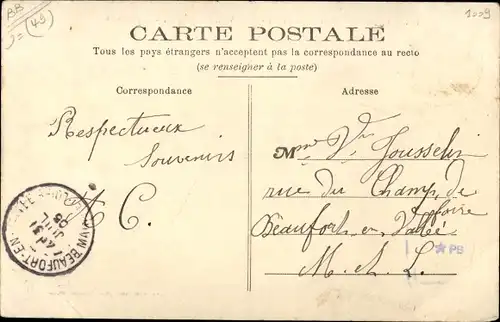 BB
(49)
1009
CARTE POSTALE
Tous les pays étrangers n'acceptent pas la correspondance au recto
(se renseigner à la poste)
Correspondance
Adresse
Respectueux
Souvenirs
A C.
Mme Vve Jousselin
rue du Champ de
foire
Beaufort en Vallée
M. & L.
BEAUFORT-EN-
31
JUIL
05
*PB